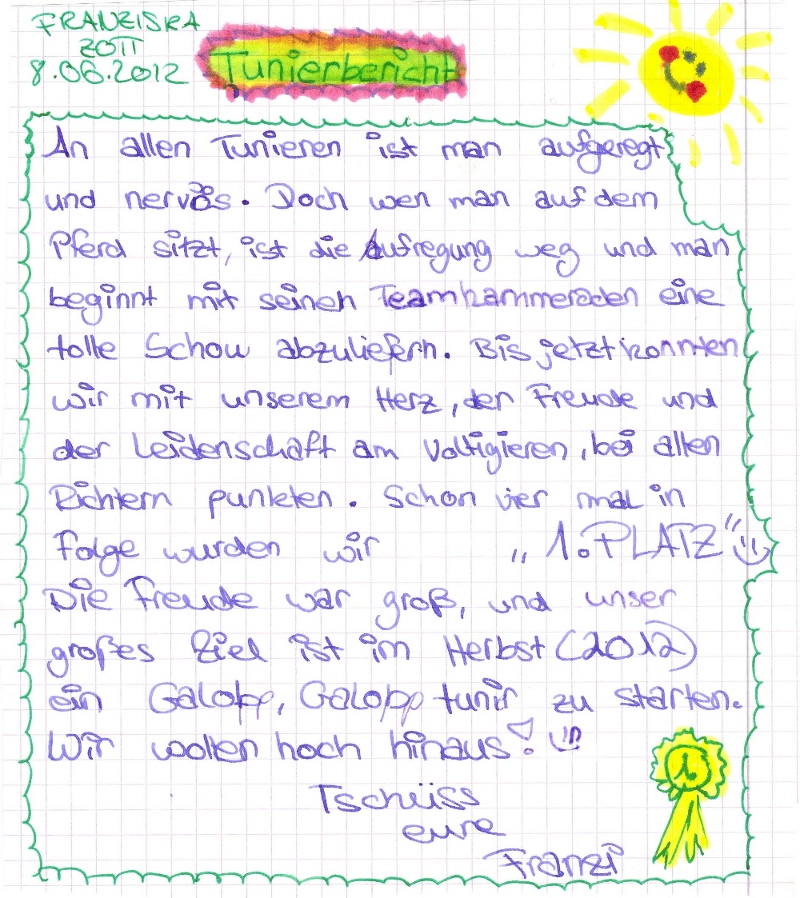 FRANZISKA
ZOTT
8.06.2012
Tunierbericht
An allen Tunieren ist man aufgeregt
und nervös. Doch wen man auf dem
Pferd sitzt, ist die Aufregung weg und man
beginnt mit seinen Teamkammeraden eine
tolle Schow abzuliefern. Bis jetzt konnten
wir mit unserem Herz, der Freude und
der Leidenschaft am Voltigieren, bei allen
Richtern punkten. Schon vier mal in
Folge wurden wir „1. PLATZ"
Die Freude war groß, und unser
großes Ziel ist im Herbst (2012)
ein Galopp, Galopp tunir zu starten.
Wir wollen hoch hinaus!
Tschüss
eure
Franzi
1.